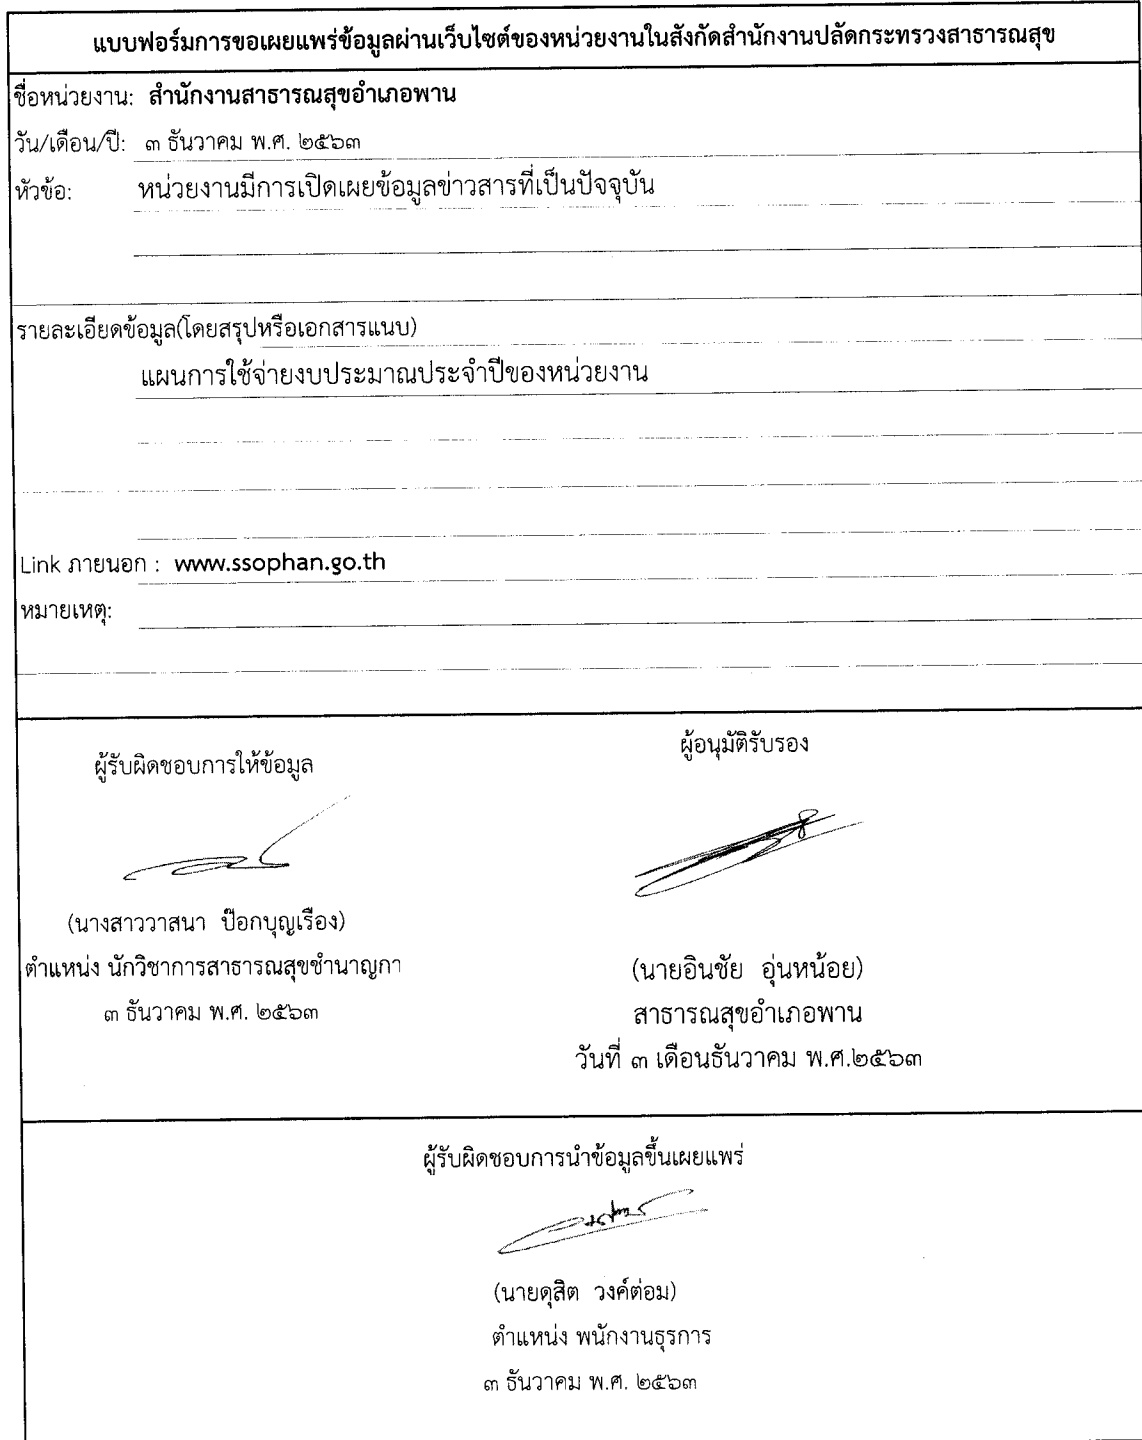 แบบฟอร์มการขอเผยแพร่ข้อมูลผ่านเว็บไซต์ของหน่วยงานในสังกัดสำนักงานปลัดกระทรวงสาธารณสุข
ชื่อหน่วยงาน: สำนักงานสาธารณสุขอำเภอพาน
วัน/เดือน/ปี: ๓ ธันวาคม พ.ศ. ๒๕๖๓
หัวข้อ: หน่วยงานมีการเปิดเผยข้อมูลข่าวสารที่เป็นปัจจุบัน
รายละเอียดข้อมูล(โดยสรุปหรือเอกสารแนบ)
แผนการใช้จ่ายงบประมาณประจำปีของหน่วยงาน
Link ภายนอก : www.ssophan.go.th
หมายเหตุ:
ผู้รับผิดชอบการให้ข้อมูล
(นางสาววาสนา ป๊อกบุญเรือง)
ตำแหน่ง นักวิชาการสาธารณสุขชำนาญกา
๓ ธันวาคม พ.ศ. ๒๕๖๓
ผู้อนุมัติรับรอง
(นายอินชัย อุ่นหน้อย)
สาธารณสุขอำเภอพาน
วันที่ ๓ เดือนธันวาคม พ.ศ.๒๕๖๓
ผู้รับผิดชอบการนำข้อมูลขึ้นเผยแพร่
(นายดุสิต วงค์ต่อม)
ตำแหน่ง พนักงานธุรการ
๓ ธันวาคม พ.ศ. ๒๕๖๓